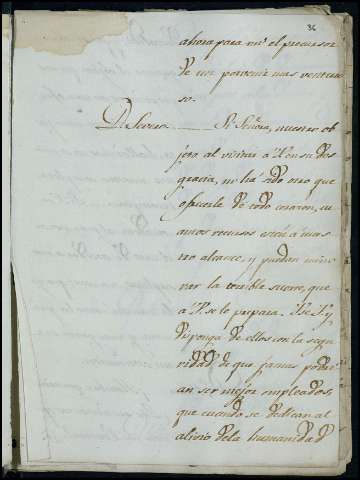 36
ahora para mi el precursor
de un porvenir mas venturo
so.
Dn. Severo. Si Señora, nuestro ob
jeto al visitar á V. en su des
gracia, no ha sido otro que
ofrecerle de todo corazon, cu
antos recursos esten á nues
tro alcance, y puedan mino
rar la terrible suerte, que
á V. se le prepara.
disponga de ellos con la segu
ridad, de que jamas podri
an ser mejor empleados,
que cuando se dedican al
alivio dela humanidad